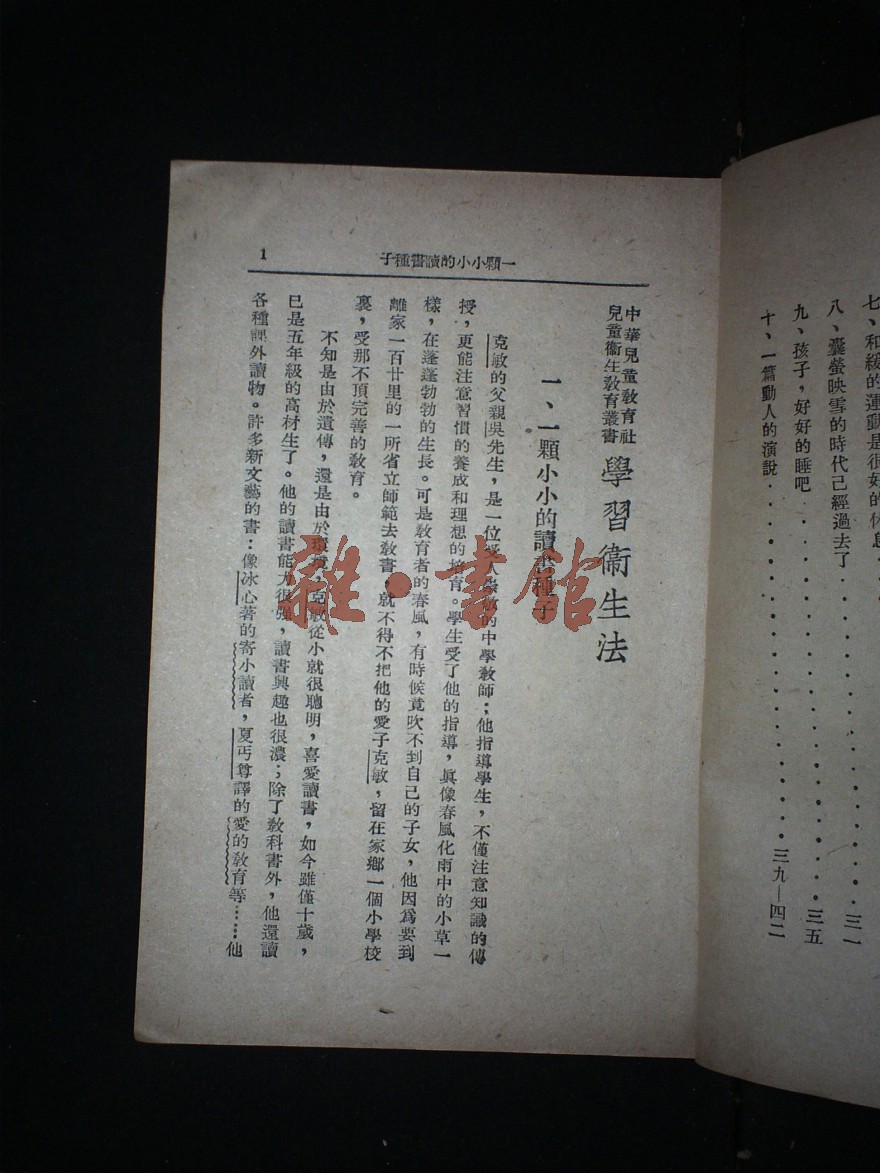 七、和緩的運動是很好的休息...三一
八、囊螢映雪的時代已經過去了...三五
九、孩子，好好的睡吧
十、一篇動人的演說...三九—四二
一顆小小的讀書種子
1
中華兒童教育社
兒童衞生教育叢書
學習衞生法
一、一顆小小的讀書種子
克敏的父親吳先生，是一位受人崇敬的中學教師；他指導學生，不僅注意知識的傳
授，更能注意習慣的養成和理想的培育。學生受了他的指導，眞像春風化雨中的小草一
樣，在蓬蓬勃勃的生長。可是教育者的春風，有時候竟吹不到自己的子女，他因爲要到
離家一百廿里的一所省立師範去教書，就不得不把他的愛子克敏，留在家鄉一個小學校
裏，受那不頂完善的教育。
不知是由於遺傳，還是由於環境，克敏從小就很聰明，喜愛讀書，如今雖僅十歲，
已是五年級的高材生了。他的讀書能力很強，讀書興趣也很濃；除了教科書外，他還讀
各種課外讀物。許多新文藝的書：像冰心著的寄小讀者，夏丏尊譯的愛的教育等……他
雜·書館